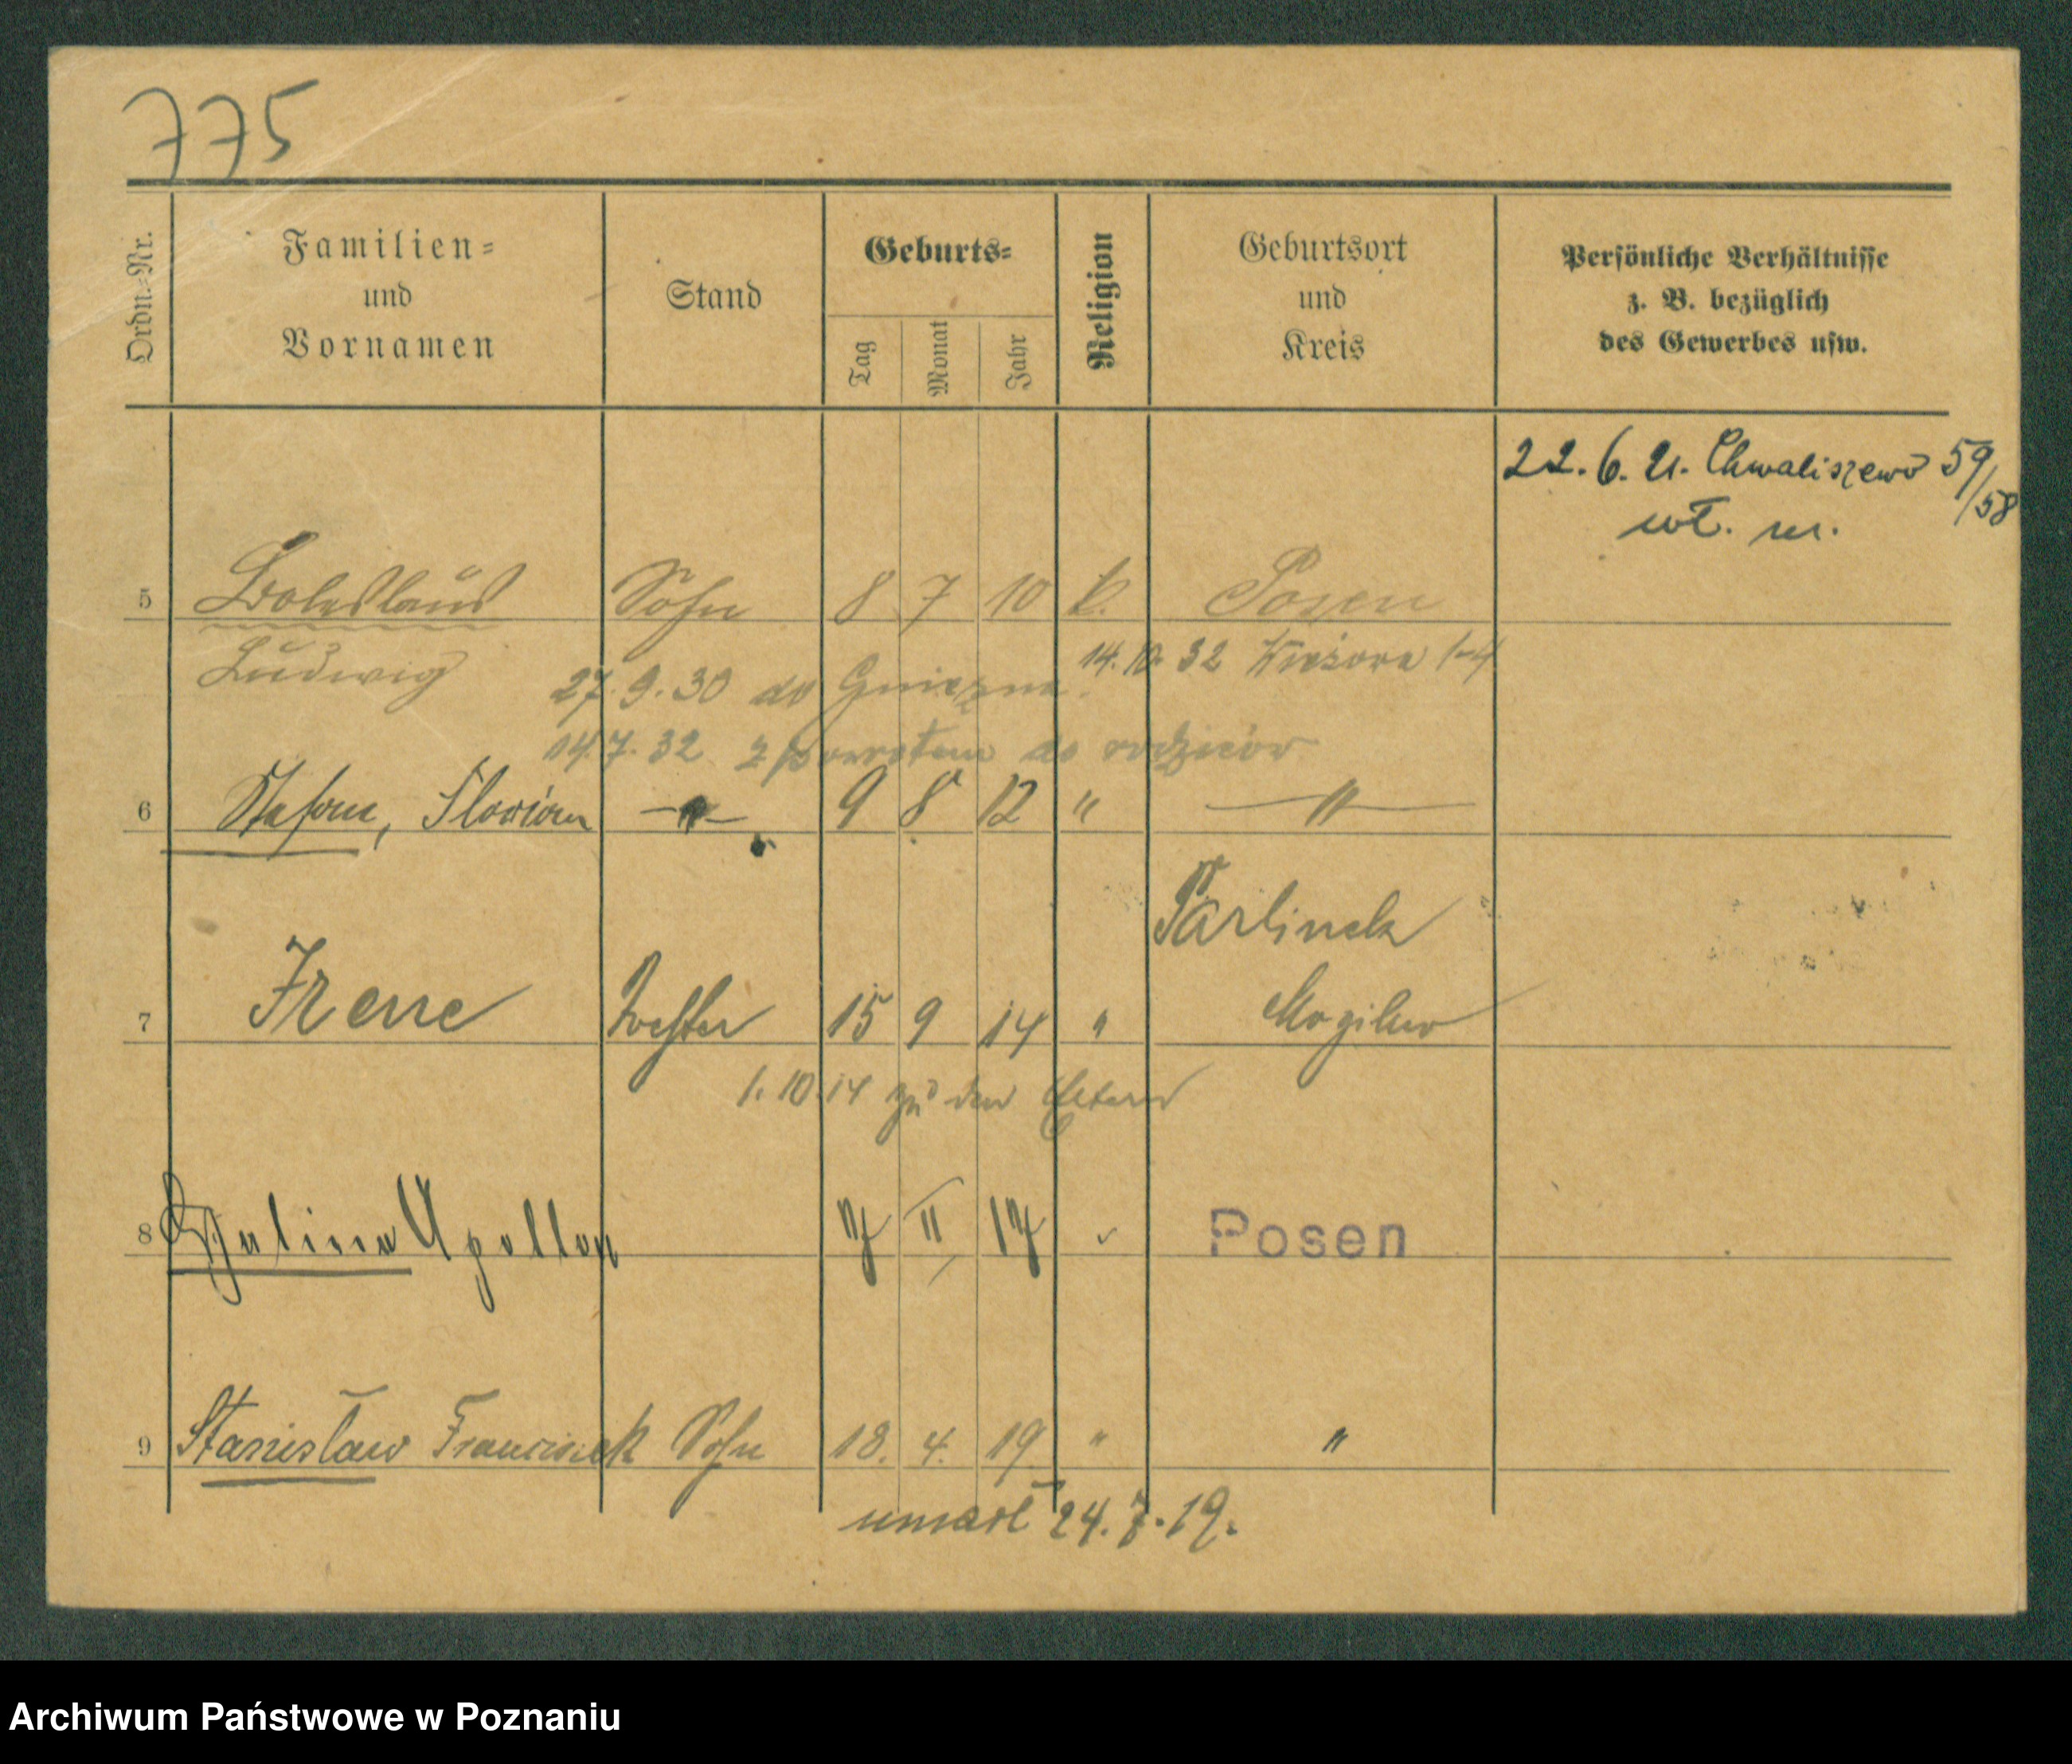 775
Ordn.-Nr.
Familien-
und
Vornamen
Stand
Geburts-
Tag
Monat
Jahr
Religion
Geburtsort
und
Kreis
Persönliche Verhältnisse
z. B. bezüglich
des Gewerbes usw.
22. 6. 21. Chwaliszewo 59/58
wł. m.
5 Boleslaus Sohn 8 7 10 k. Posen
Ludwig
27. 9. 30 do Gniezna. 14. 10. 32 1-4
14. 7. 32 z powrotem do rodziców
6 Stefan, Florian -"- 9 8 12 " -"-
Parlinek
7 Irene 15 9 14 " Mogilno
1. 10. 14 zu den Eltern
8 Halina Apollon 7 II 17 Posen
9 Stanisław Franciszek Sohn 18. 4. 19 " "
umarł 24. 7. 19.
Archiwum Państwowe w Poznaniu